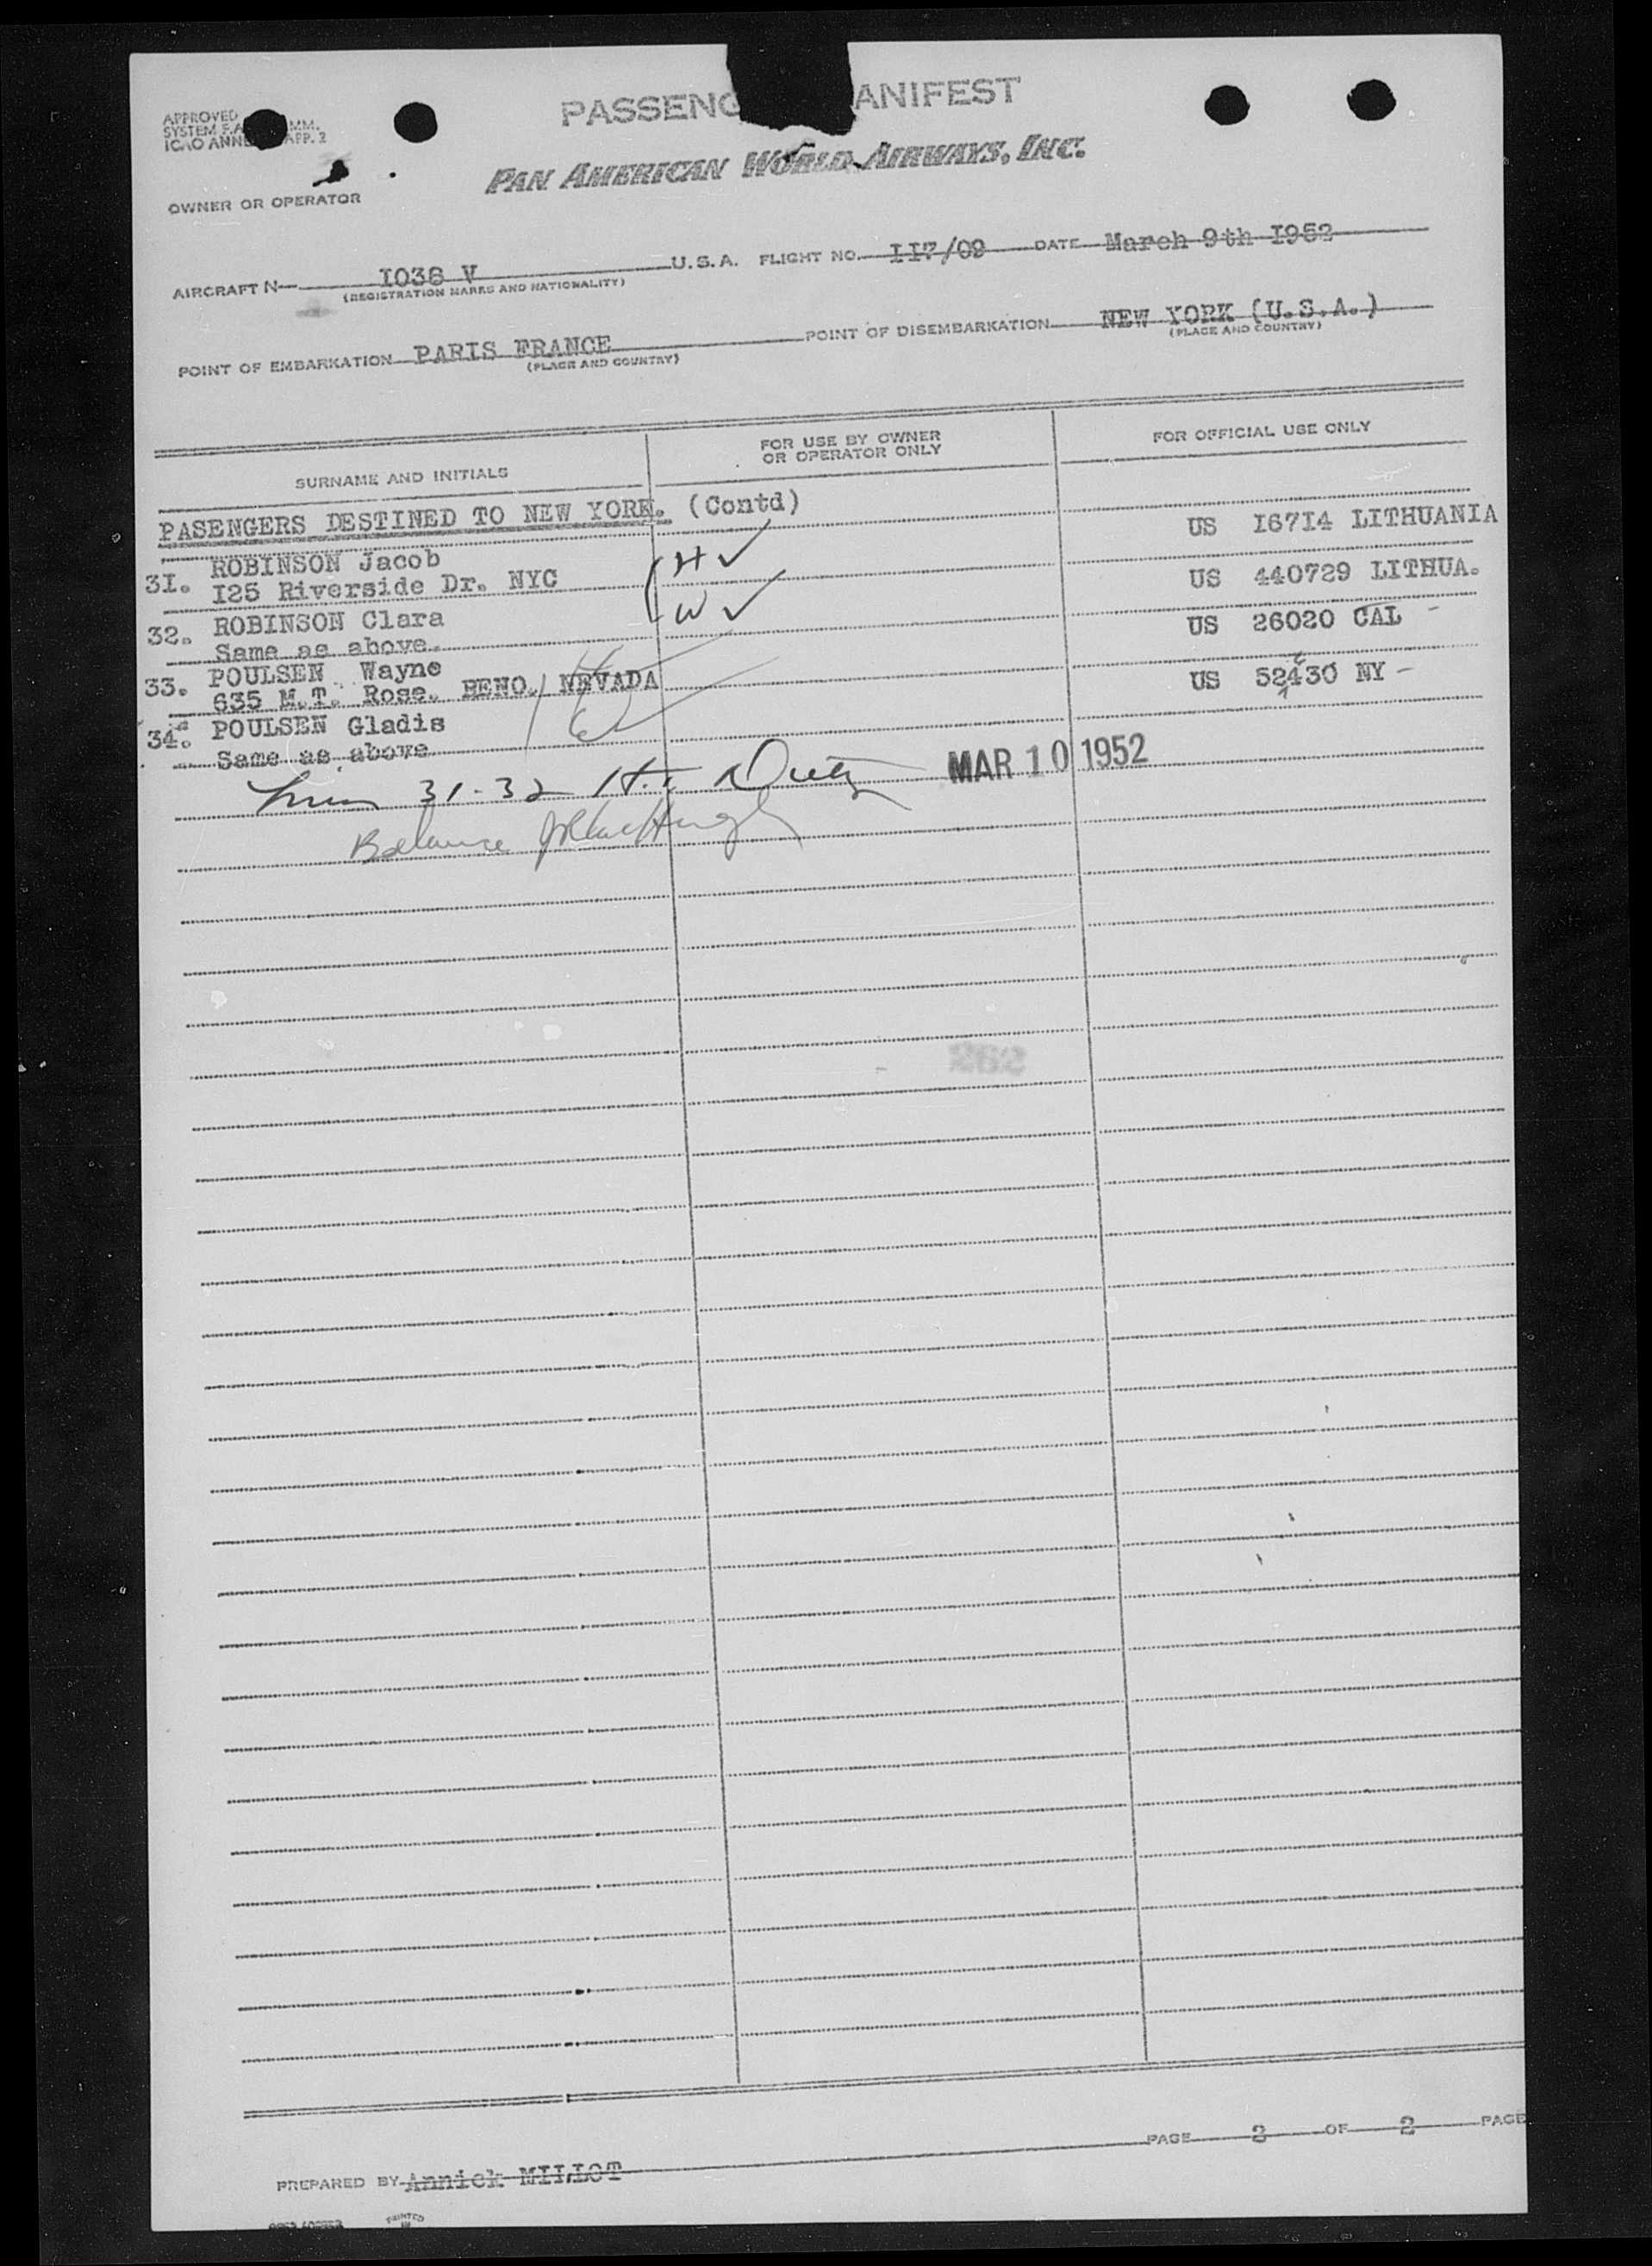 PASSENG ANIFEST
APPROVED
SYSTEM F.A MM.
ICAO ANNE APP. 2
PAN AMERICAN WORLD AIRWAYS, INC.
OWNER OR OPERATOR
AIRCRAFT N— I038 V U.S.A. FLIGHT NO. II7/09 DATE March 9th I952
(REGISTRATION MARKS AND NATIONALITY)
POINT OF EMBARKATION PARIS FRANCE POINT OF DISEMBARKATION NEW YORK (U.S.A.)
(PLACE AND COUNTRY) (PLACE AND COUNTRY)
SURNAME AND INITIALS FOR USE BY OWNER OR OPERATOR ONLY FOR OFFICIAL USE ONLY
PASENGERS DESTINED TO NEW YORK. (Contd)
3I. ROBINSON Jacob H ✓ US I67I4 LITHUANIA
I25 Riverside Dr. NYC
32. ROBINSON Clara W ✓ US 440729 LITHUA.
Same as above.
33. POULSEN Wayne H US 26020 CAL -
635 M.T. Rose. RENO. NEVADA
34. POULSEN Gladis W US 52430 NY -
Same as above
31-32 MAR 10 1952
Balance
262
PAGE 2 OF 2 PAGE
PREPARED BY Annick MILLOT
PRINTED